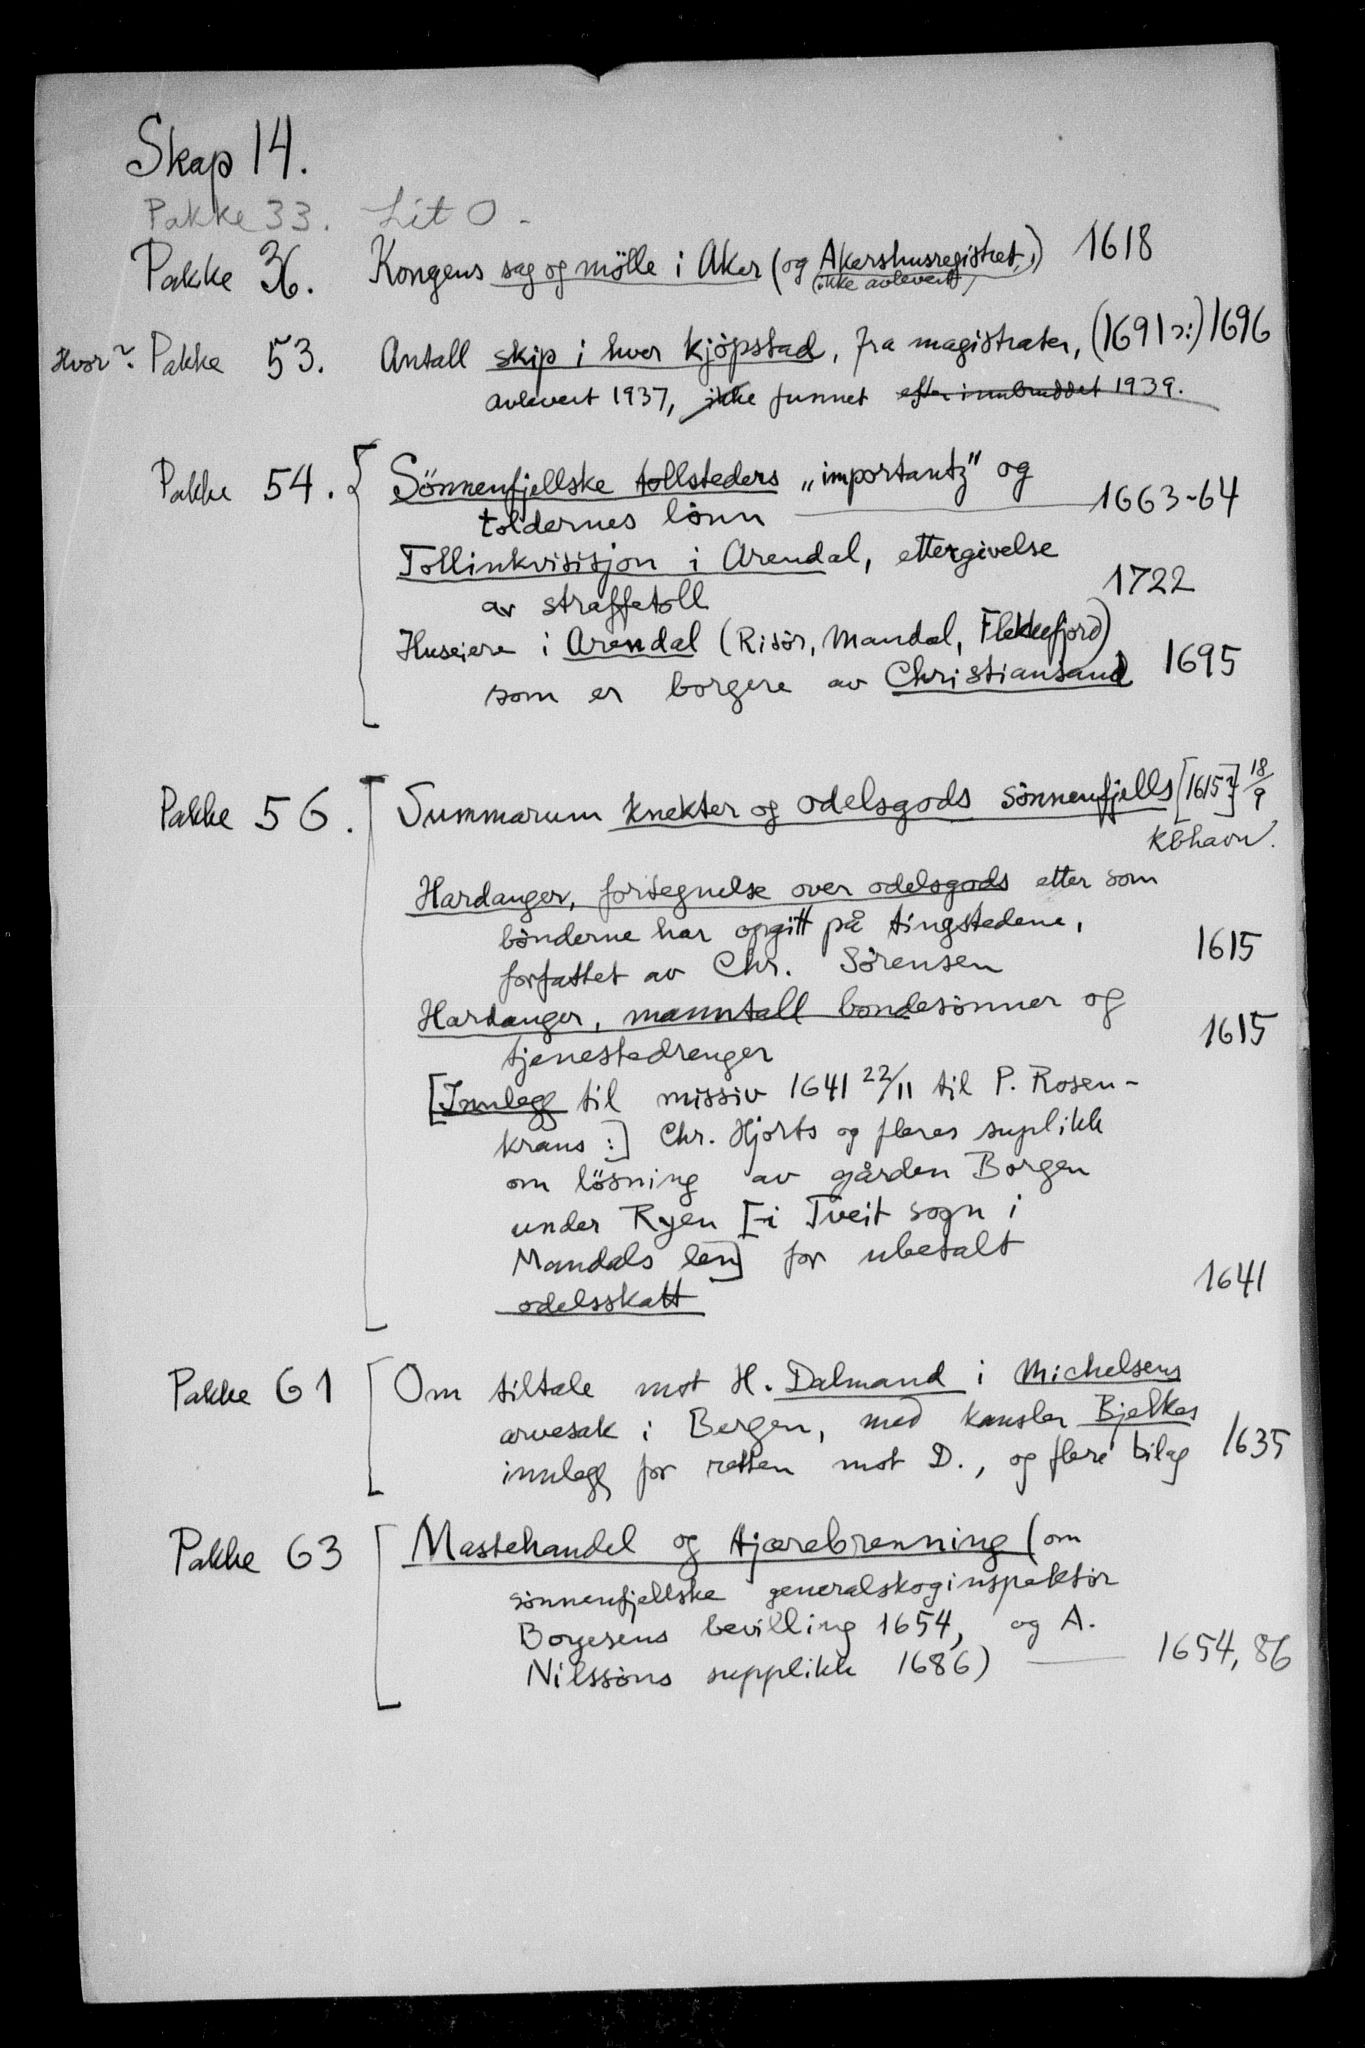 Skap 14.
Pakke 33. Lit O -
Pakke 36. Kongens sag og mölle i Aker (og Akershusregistret,) 1618
(ikke avlevert)
Hvor? Pakke 53. Antall skip i hver kjöpstad, fra magistrater, (1691 ɔ:) 1696
avlevert 1937, ikke funnet efter innbruddet 1939.
Pakke 54. Sönnenfjellske tollsteders „importantz" og
toldernes lönn 1663-64
Tollinkvisisjon i Arendal, ettergivelse
av straffetoll 1722
Huseiere i Arendal (Risör, Mandal, Flekkefjord)
som er borgere av Christiansand 1695
Pakke 56. Summarum knekter og odelsgods sönnenfjells [1615?] 18/9
Kbhavn.
Hardanger, fortegnelse over odelsgods etter som
bönderne har opgitt på tingstedene,
forfattet av Chr. Sörensen 1615
Hardanger, manntall bondesönner og
tjenestedrenger 1615
[Innlegg til missiv 1641 22/11 til P. Rosen-
krans :] Chr. Hjorts og fleres suplikk
om lösning av gården Borgen
under Ryen [-i Tveit sogn i
Mandals len] for ubetalt
odelsskatt 1641
Pakke 61 Om tiltale mot H. Dalmand i Michelsens
arvesak i Bergen, med kansler Bjelkes
innlegg for retten mot D., og flere bilag 1635
Pakke 63 Mastehandel og tjærebrenning (om
sönnenfjellske generalskoginspektör
Boyesens bevilling 1654, og A.
Nilssöns supplikk 1686) 1654, 86